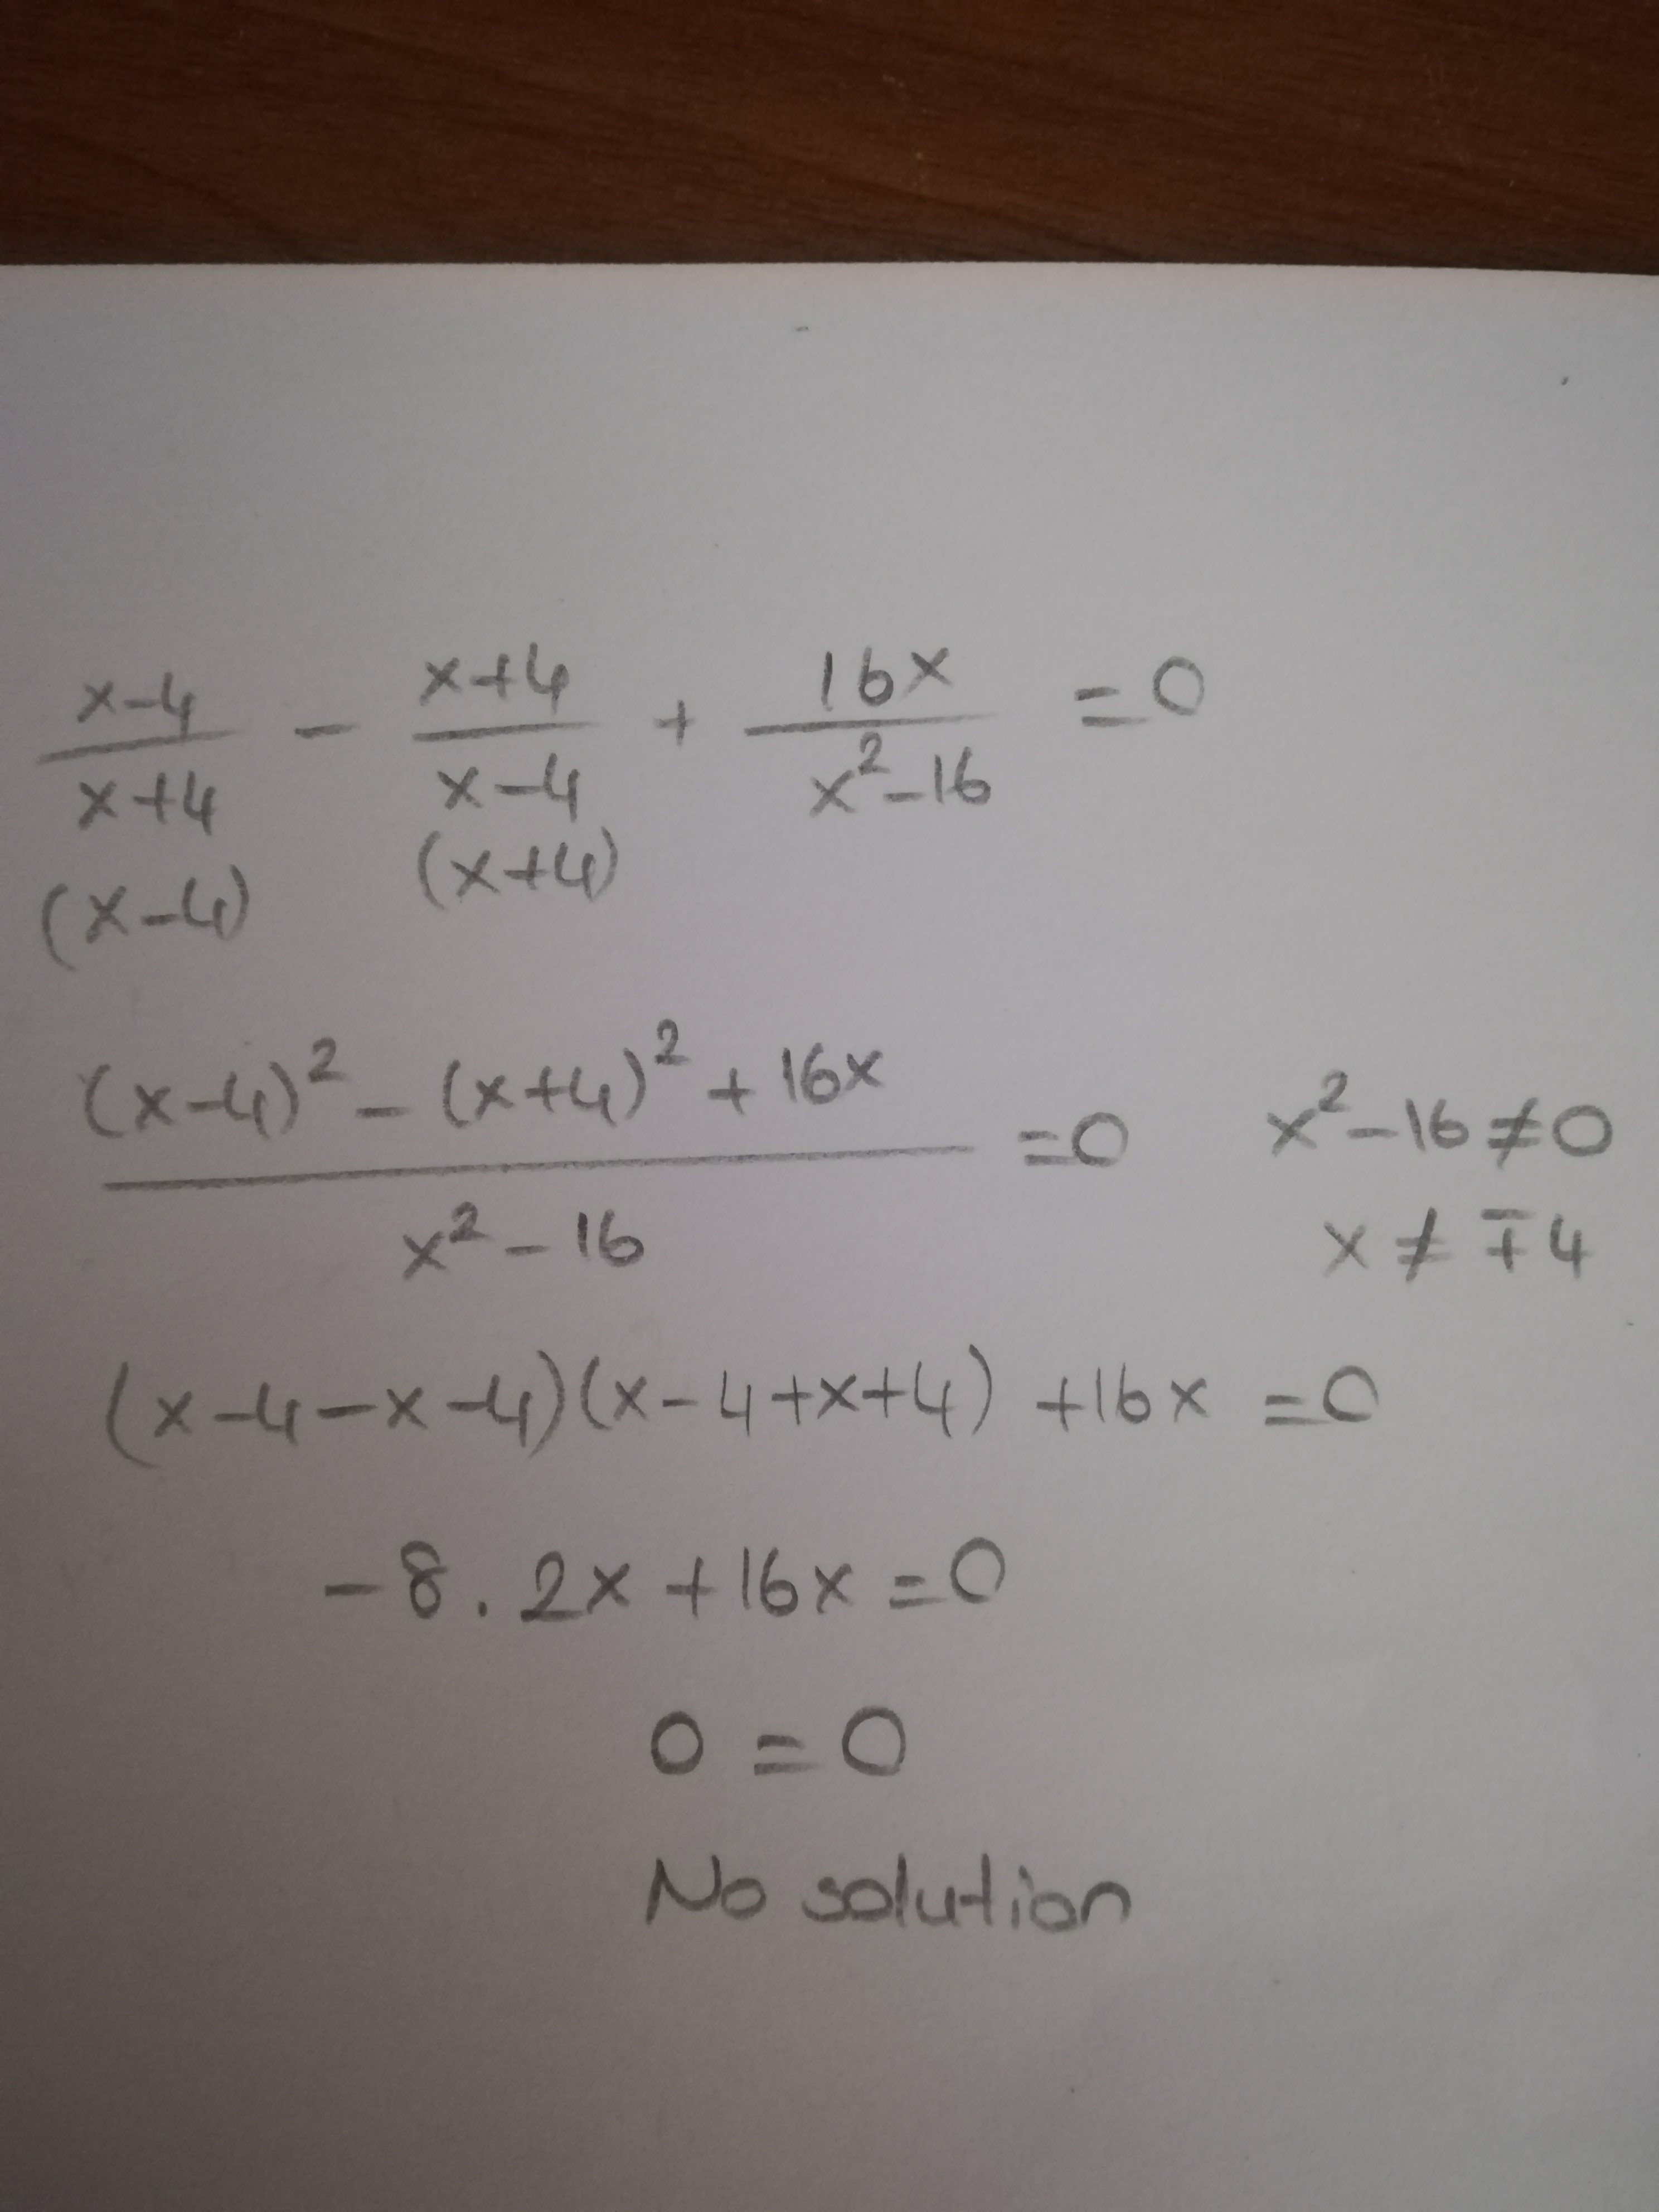 x-4/x+4 - x+4/x-4 + 16x/x²-16 = 0
(x-4) (x+4)
(x-4)² - (x+4)² + 16x / x² - 16 = 0 x² - 16 ≠ 0
x ≠ ∓4
(x-4-x-4)(x-4+x+4) + 16x = 0
-8 . 2x + 16x = 0
0 = 0
No solution